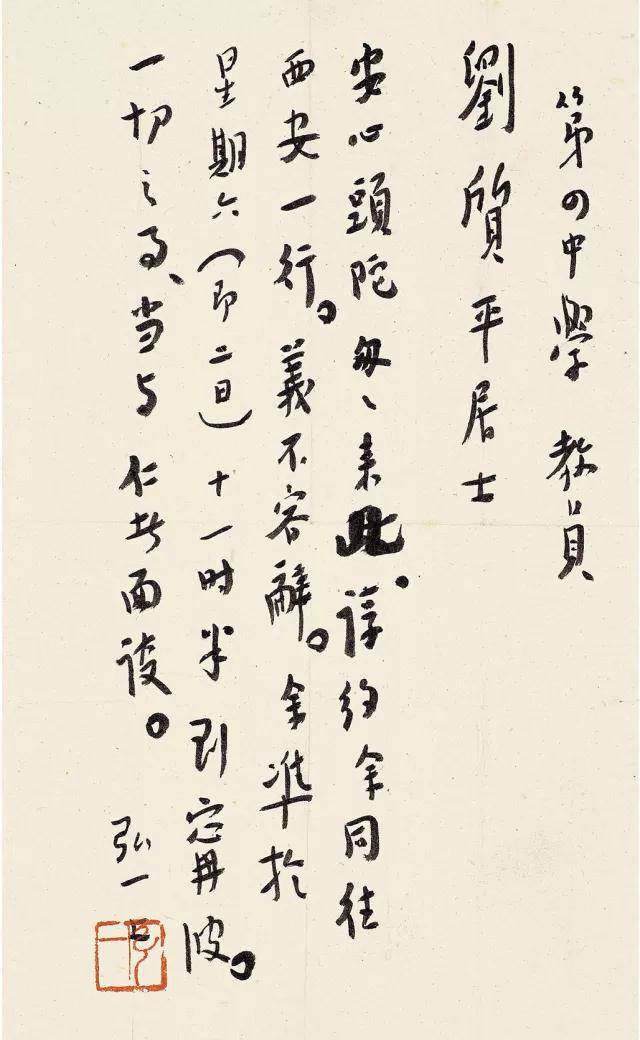 第四中學 教員
劉質平居士
安心頭陀匆匆来此。諄约余同往
西安一行。義不容辭。余準於
星期六（即二日）十一时半到宓再波。
一切之事、当与仁者面谈。
弘一